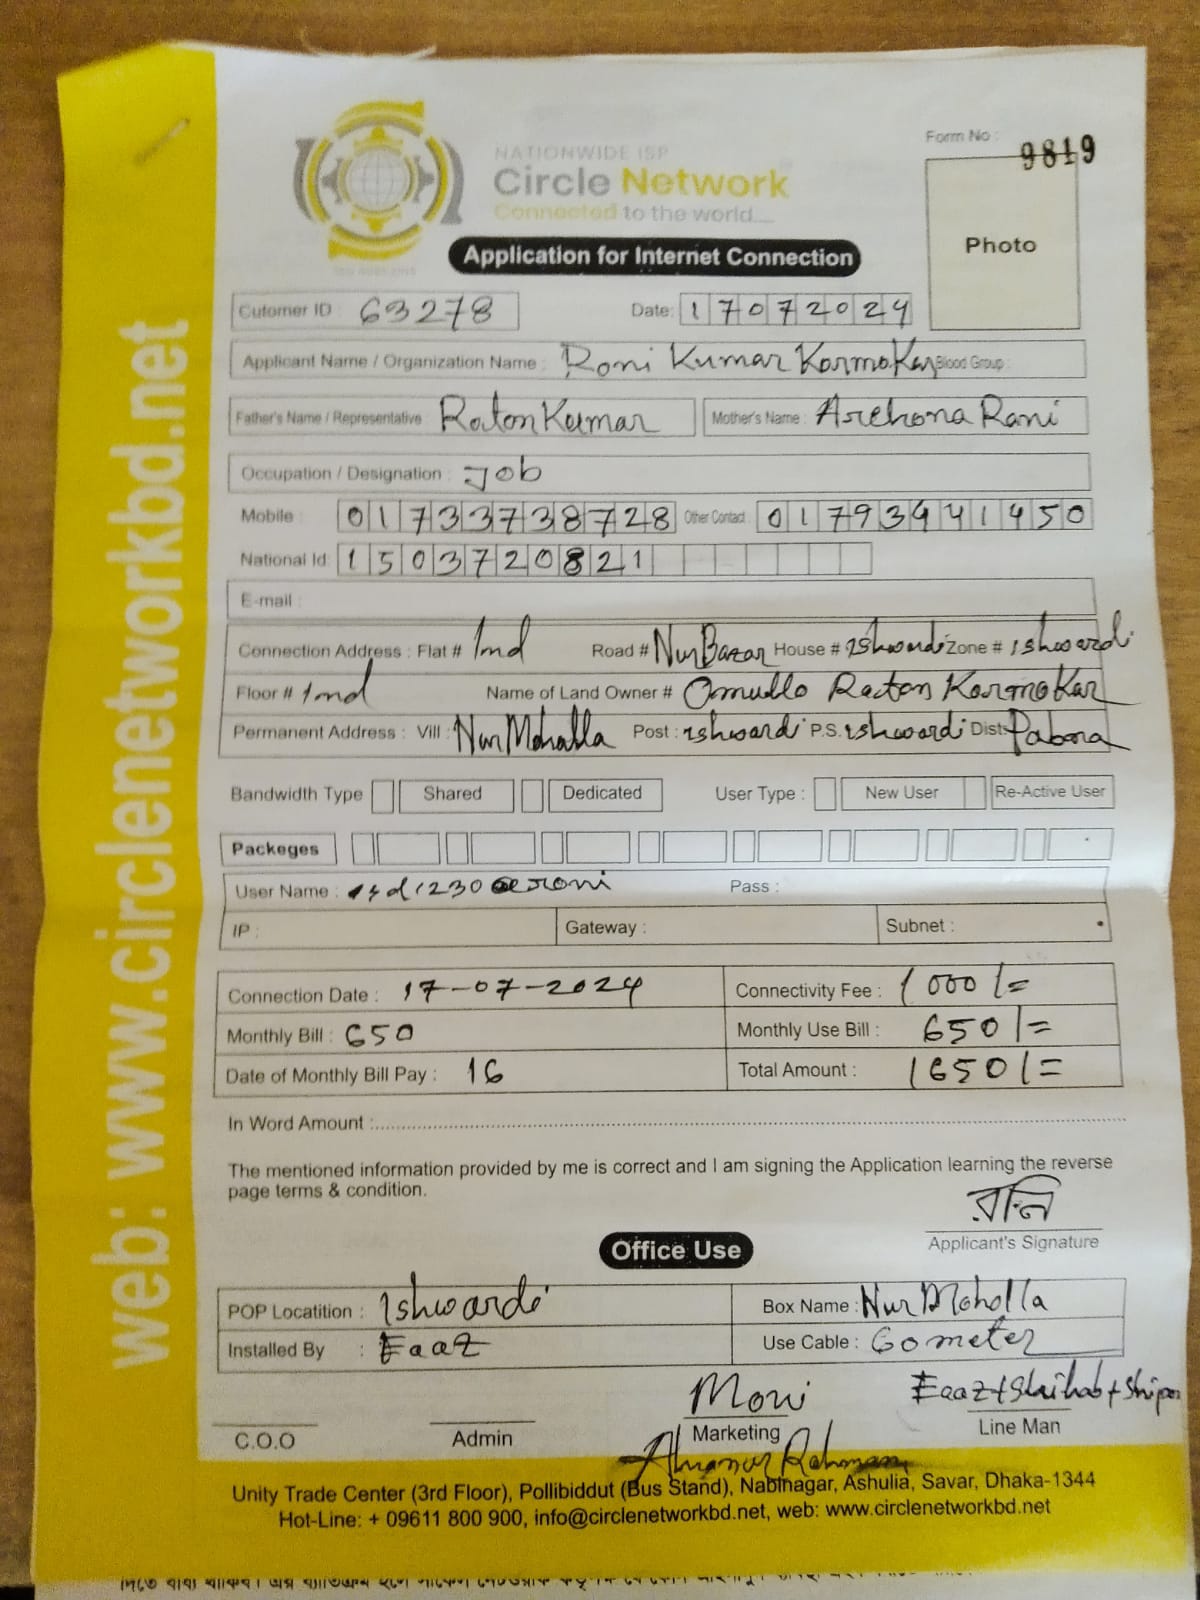 web: www.circlenetworkbd.net
NATIONWIDE ISP
Circle Network
Connected to the world....
Form No : 9819
Photo
Application for Internet Connection
Cutomer ID : 63278 Date: 17072024
Applicant Name / Organization Name : Roni Kumar Kormokar Blood Group :
Father's Name / Representative : Raton Kumar Mother's Name : Archona Rani
Occupation / Designation : Job
Mobile : 01733738728 Other Contact : 01793941450
National Id: 1503720821
E-mail :
Connection Address : Flat # 1nd Road # Nur Bazar House # Ishwardi Zone # Ishwardi
Floor # 1nd Name of Land Owner # Omullo Raton Kormokar
Permanent Address : Vill : Nur Mohalla Post : Ishwardi P.S. Ishwardi Dist: Pabna
Bandwidth Type Shared Dedicated User Type : New User Re-Active User
Packeges
User Name : Pass :
IP : Gateway : Subnet :
Connection Date : 17-07-2024 Connectivity Fee : 1000/=
Monthly Bill : 650 Monthly Use Bill : 650/=
Date of Monthly Bill Pay : 16 Total Amount : 1650/=
In Word Amount :
The mentioned information provided by me is correct and I am signing the Application learning the reverse
page terms & condition.
রনি
Applicant's Signature
Office Use
POP Locatition : Ishwardi Box Name : Nur Moholla
Installed By : Eaaz Use Cable : 60 meter
Moni Eaaz+Shihab+Shipon
C.O.O Admin Marketing Line Man
Rahman
Unity Trade Center (3rd Floor), Pollibiddut (Bus Stand), Nabinagar, Ashulia, Savar, Dhaka-1344
Hot-Line: + 09611 800 900, info@circlenetworkbd.net, web: www.circlenetworkbd.net